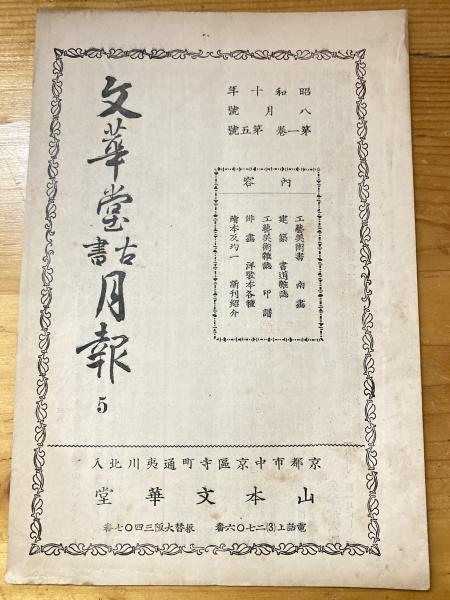 昭和十年
八月號
第一卷第五號
內容
工藝美術書 南畫
建築 書道雜誌
工藝美術雜誌 印譜
俳畫 洋裝本各種
繪本及均一 新刊紹介
文華堂古書月報
5
京都市中京區寺町通夷川北入
山本文華堂
電話上(3)二七〇六番 振替大阪三四〇七番